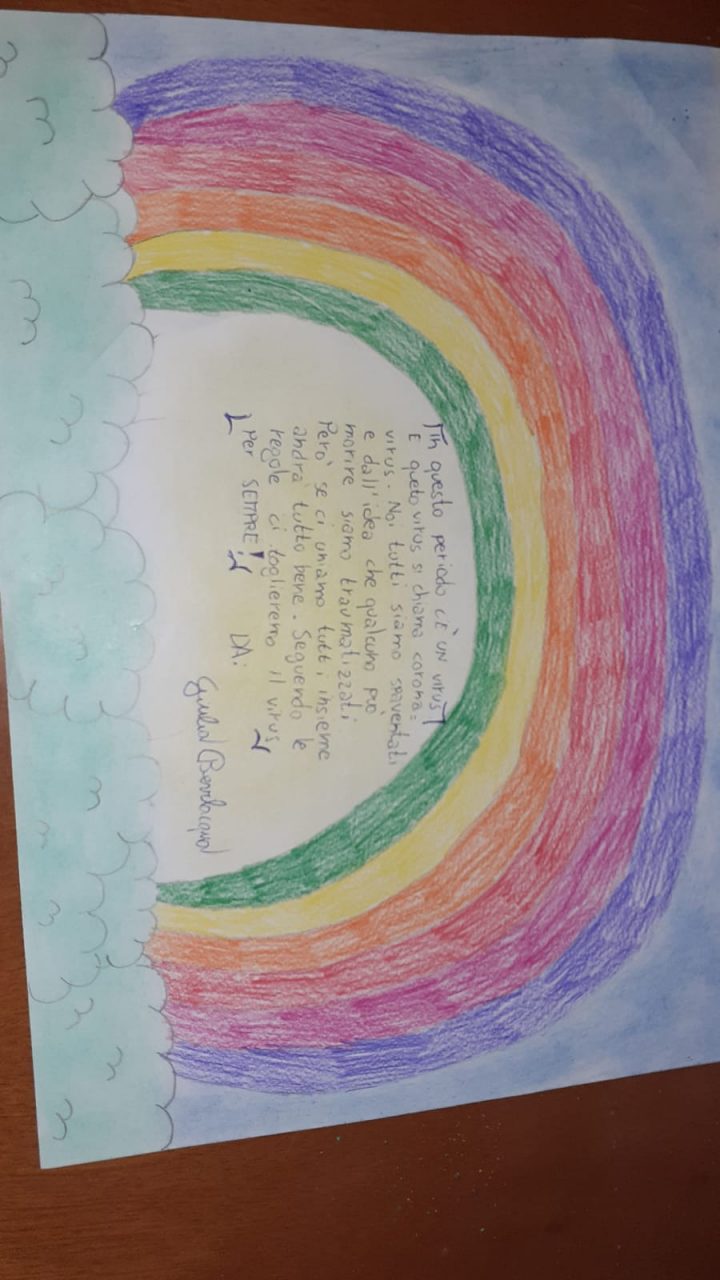 in questo periodo c'È UN virus
E queto virus si chiama corona=
virus. Noi tutti siamo spaventati
e dall'idea che qualcuno può
morire siamo traumatizzati.
Però se ci uniamo tutti insieme
andrà tutto bene. Seguendo le
regole ci toglieremo il virus
Per SEMPRE!
DA:
Giulia Bevilacqua